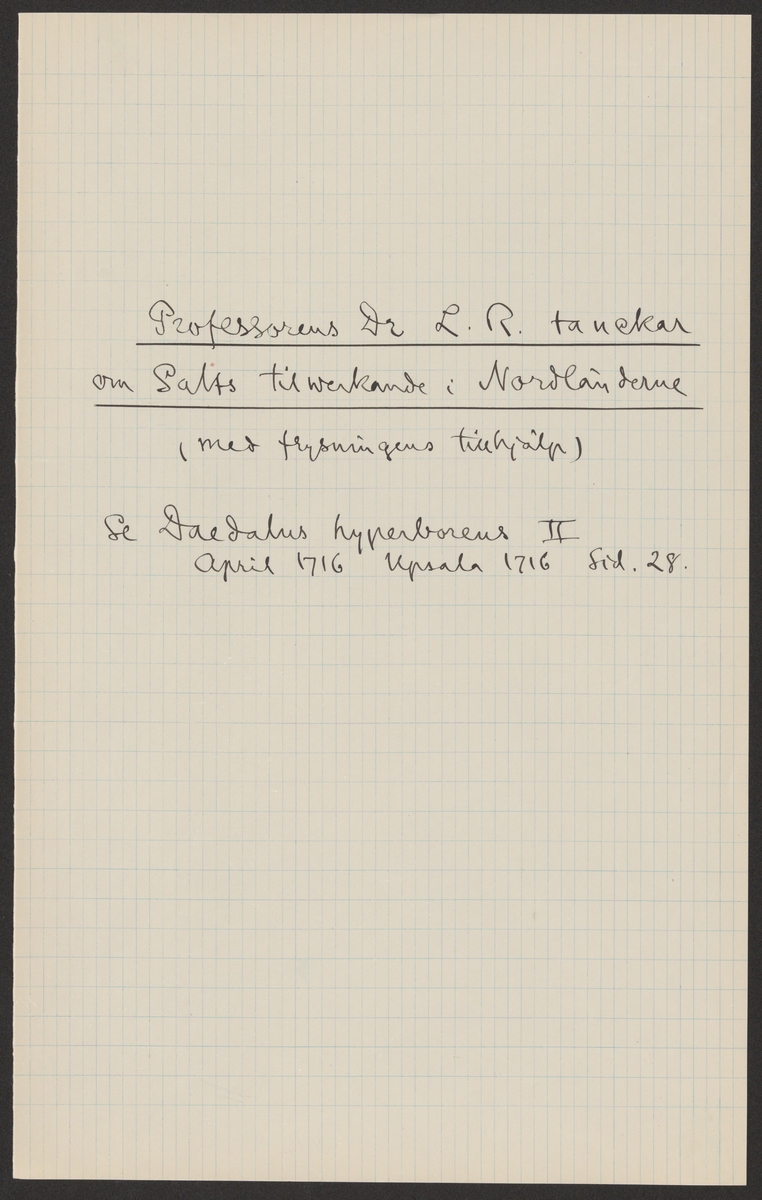 Professorens Dr L. R. tanckar
om Salts tilwerkande i Nordländerne
(med frysningens tillhjälp)
Se Daedalus hyperboreus II
April 1716 Upsala 1716 Sid. 28.